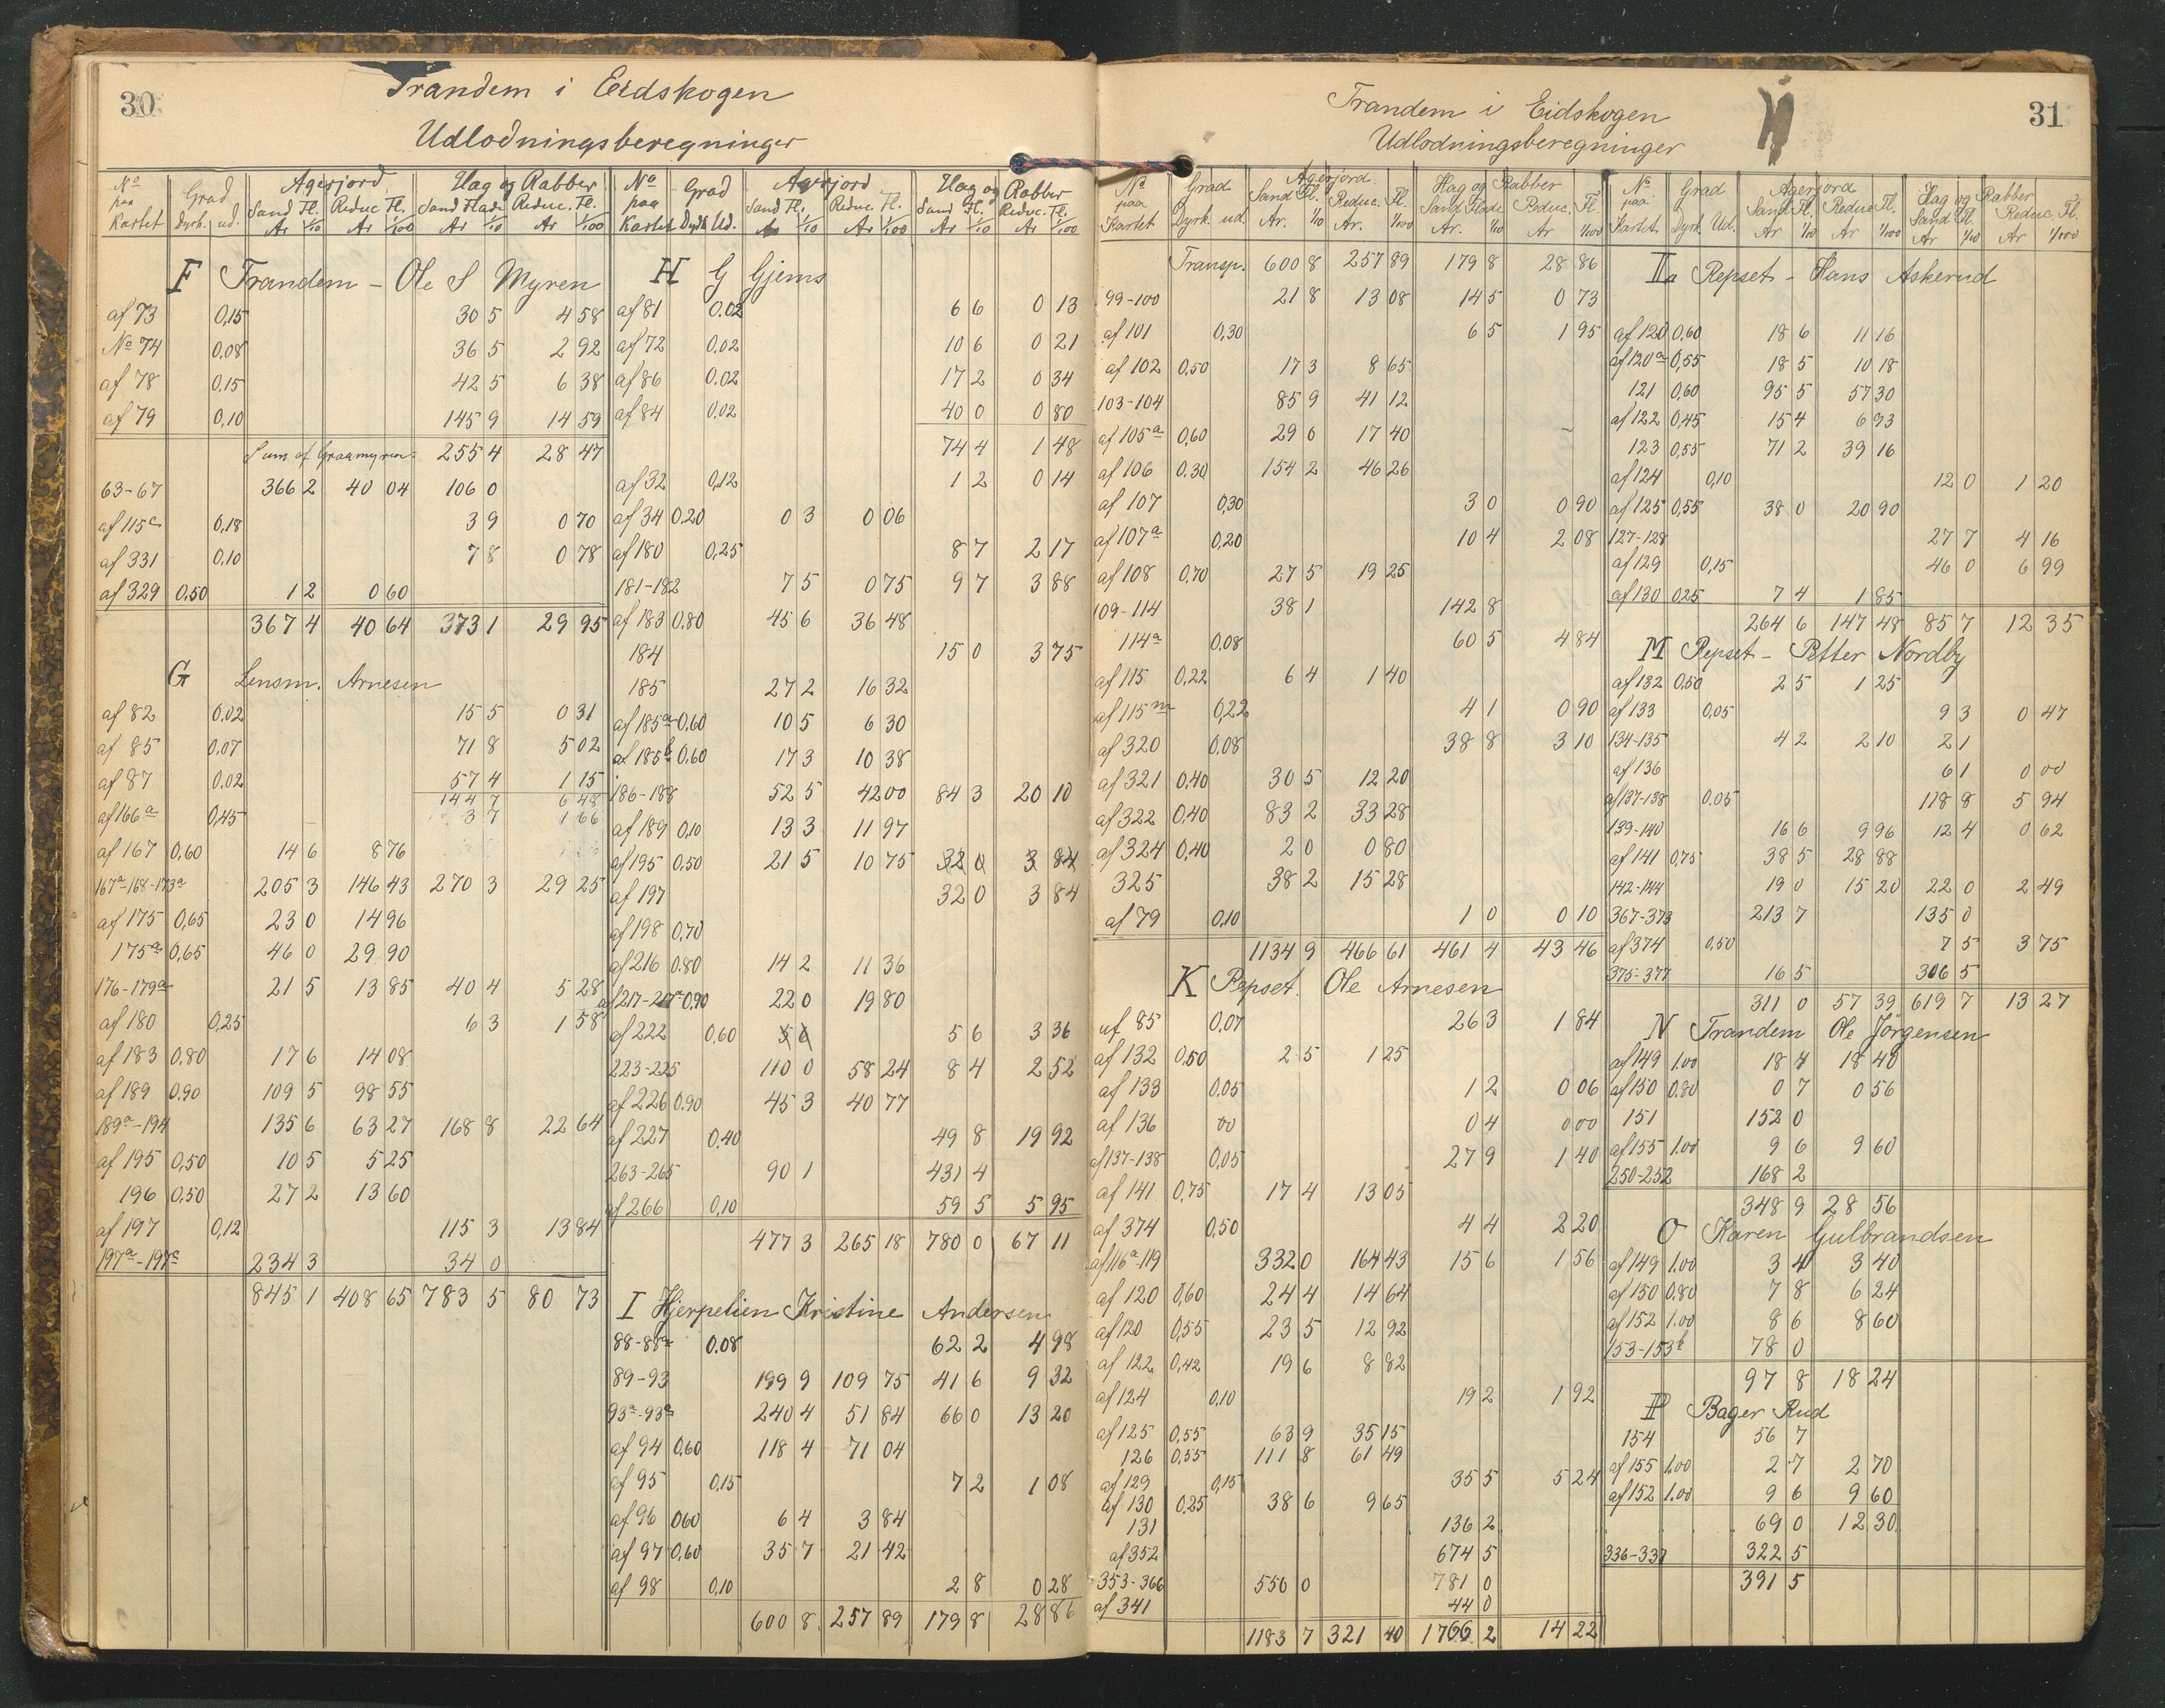 30
Trandem i Eidskogen
Udlodningsberegninger
No paa Kartet Grad Dyrk. ud. Agerjord Sand Fl. Ar 1/10 Reduc. Fl. Ar 1/100 Hag og Rabber Sand Flade Ar 1/10 Reduc. Fl. Ar 1/100
F Trandem - Ole S Myren
af 73 0,15 30 5 4 58
No 74 0,08 36 5 2 92
af 78 0,15 42 5 6 38
af 79 0,10 145 9 14 59
Sum af Graamyren: 255 4 28 47
63-67 366 2 40 04 106 0
af 115c 0,18 3 9 0 70
af 331 0,10 7 8 0 78
af 329 0,50 1 2 0 60
367 4 40 64 373 1 29 95
G Lensm. Arnesen
af 82 0,02 15 5 0 31
af 85 0,07 71 8 5 02
af 87 0,02 57 4 1 15
144 7 6 48
af 166a 0,45 3 7 1 66
af 167 0,60 14 6 8 76
167a-168-173a 205 3 146 43 270 3 29 25
af 175 0,65 23 0 14 96
175a 0,65 46 0 29 90
176-179a 21 5 13 85 40 4 5 28
af 180 0,25 6 3 1 58
af 183 0.80 17 6 14 08
af 189 0.90 109 5 98 55
189a-194 135 6 63 27 168 8 22 64
af 195 0,50 10 5 5 25
196 0,50 27 2 13 60
af 197 0,12 115 3 13 84
197a-197c 234 3 34 0
845 1 408 65 783 5 80 73
No paa Kartet Grad Dyrk Ud. Agerjord Sand Fl. Ar 1/10 Reduc. Fl. Ar 1/100 Hag og Rabber Sand Fl. Ar 1/10 Reduc. Fl. Ar 1/100
H G Gjems
af 81 0.02 6 6 0 13
af 72 0.02 10 6 0 21
af 86 0.02 17 2 0 34
af 84 0,02 40 0 0 80
74 4 1 48
af 32 0,12 1 2 0 14
af 34 0.20 0 3 0 06
af 180 0,25 8 7 2 17
181-182 7 5 0 75 9 7 3 88
af 183 0.80 45 6 36 48
184 15 0 3 75
185 27 2 16 32
af 185a 0,60 10 5 6 30
af 185b 0,60 17 3 10 38
186-188 52 5 42 00 84 3 20 10
af 189 0,10 13 3 11 97
af 195 0,50 21 5 10 75 32 0 3 84
af 197 32 0 3 84
af 198 0,70
af 216 0.80 14 2 11 36
af 217-217a 0,90 22 0 19 80
af 222 0,60 5 6 5 6 3 36
223-225 110 0 58 24 8 4 2 52
af 226 0.90 45 3 40 77
af 227 0,40 49 8 19 92
263-265 90 1 431 4
af 266 0,10 59 5 5 95
477 3 265 18 780 0 67 11
I Hjerpelien Kristine Andersen
88-88a 0.08 62 2 4 98
89-93 199 9 109 75 41 6 9 32
93a-93a 240 4 51 84 66 0 13 20
af 94 0,60 118 4 71 04
af 95 0,15 7 2 1 08
af 96 060 6 4 3 84
af 97 0,60 35 7 21 42
af 98 0,10 2 8 0 28
600 8 257 89 179 8 28 86
31
Trandem i Eidskogen
Udlodningsberegninger
No paa Kartet Grad Dyrk. ud. Agerjord Sand Fl. Ar. 1/10 Reduc. Fl. Ar. 1/100 Hag og Rabber Sand Flade Ar. 1/10 Reduc. Fl. Ar 1/100
Transp. 600 8 257 89 179 8 28 86
99-100 21 8 13 08 14 5 0 73
af 101 0,30 6 5 1 95
af 102 0,50 17 3 8 65
103-104 85 9 41 12
af 105a 0,60 29 0 17 40
af 106 0.30 154 2 46 26
af 107 0,30 3 0 0 90
af 107a 0,20 10 4 2 08
af 108 0,70 27 5 19 25
109-114 38 1 142 8
114a 0,08 60 5 4 84
af 115 0,22 6 4 1 40
af 115m 0,22 4 1 0 90
af 320 0,08 38 8 3 10
af 321 0,40 30 5 12 20
af 322 0,40 83 2 33 28
af 324 0,40 2 0 0 80
325 38 2 15 28
af 79 0,10 1 0 0 10
1134 9 466 61 461 4 43 46
K Repset. Ole Arnesen
af 85 0,07 26 3 1 84
af 132 0,50 2 5 1 25
af 133 0,05 1 2 0 06
af 136 00 0 4 0 00
af 137-138 0,05 27 9 1 40
af 141 0,75 17 4 13 05
af 374 0,50 4 4 2 20
af 116a-119 332 0 164 43 15 6 1 56
af 120 0,60 24 4 14 64
af 120 0,55 23 5 12 92
af 122 0,42 19 6 8 82
af 124 0,10 19 2 1 92
af 125 0,55 63 9 35 15
126 0,55 111 8 61 49
af 129 0,15 35 5 5 24
af 130 0,25 38 6 9 65
131 136 2
af 352 674 5
353-366 550 0 781 0
af 341 44 0
1183 7 321 40 1766 2 14 22
No paa Kartet Grad Dyrk. Ud. Agerjord Sand Fl. Ar 1/10 Reduc Fl. Ar 1/100 Hag og Rabber Sand Fl. Ar 1/10 Reduc. Fl. Ar 1/100
La Repset - Hans Askerud
af 120 0,60 18 6 11 16
af 120a 0,55 18 5 10 18
121 0,60 95 5 57 30
af 122 0,45 15 4 6 93
123 0,55 71 2 39 16
af 124 0,10 12 0 1 20
af 125 0,55 38 0 20 90
127-128 27 7 4 16
af 129 0,15 46 0 6 99
af 130 025 7 4 1 85
264 6 147 48 85 7 12 35
M Repset - Petter Nordby
af 132 0,50 2 5 1 25
af 133 0,05 9 3 0 47
134-135 4 2 2 10 2 1
af 136 6 1 0 00
af 137-138 0,05 118 8 5 94
139-140 16 6 9 96 12 4 0 62
af 141 0,75 38 5 28 88
142-144 19 0 15 20 22 0 2 49
367-373 213 7 135 0
af 374 0,50 7 5 3 75
375-377 16 5 306 5
311 0 57 39 619 7 13 27
N Trandem Ole Jörgensen
af 149 1.00 18 4 18 40
af 150 0.80 0 7 0 56
151 152 0
af 155 1.00 9 6 9 60
250-252 168 2
348 9 28 56
O Karen Gulbrandsen
af 149 1.00 3 4 3 40
af 150 0.80 7 8 6 24
af 152 1.00 8 6 8 60
153-153b 78 0
97 8 18 24
P Bager Rud
154 56 7
af 155 1.00 2 7 2 70
af 152 1.00 9 6 9 60
69 0 12 30
336-337 322 5
391 5